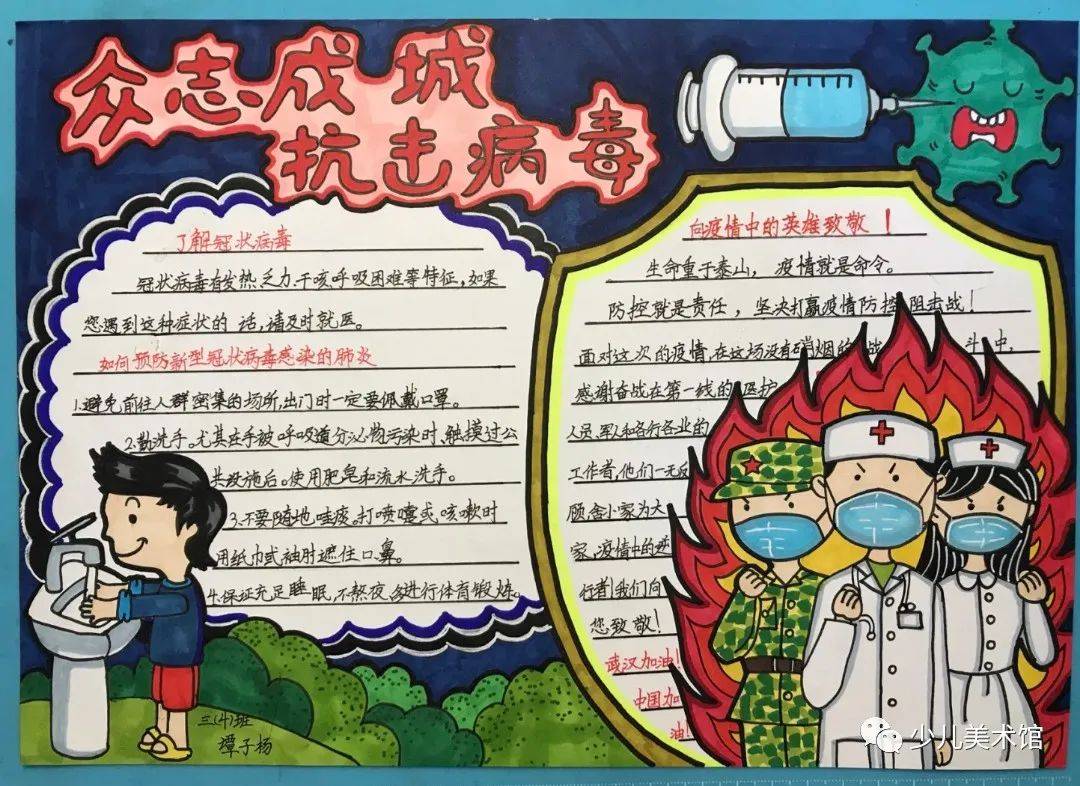 众志成城
抗击病毒
了解冠状病毒
冠状病毒有发热、乏力、干咳呼吸困难等特征,如果
您遇到这种症状的 话,请及时就医。
如何预防新型冠状病毒感染的肺炎
1.避免前往人群密集的场所,出门时一定要佩戴口罩。
2.勤洗手。尤其在手被呼吸道分泌物污染时、触摸过公
共设施后。使用肥皂和流水洗手。
3.不要随地吐痰,打喷嚏或咳嗽时
用纸巾或袖肘遮住口、鼻。
4.保证充足睡眠,不熬夜,多进行体育锻炼。
三(4)班
子杨
向疫情中的英雄致敬！
生命重于泰山，疫情就是命令。
防控就是责任，坚决打赢疫情防控 阻击战！
面对这次的疫情,在这场没有硝烟的战 斗中,
感谢奋战在第一线的医护
人员、军人和各行各业的
工作者,他们一无反
顾舍小家为大
家,疫情中的逆
行者!我们向
您致敬！
武汉加油!
中国加
油!
少儿美术馆